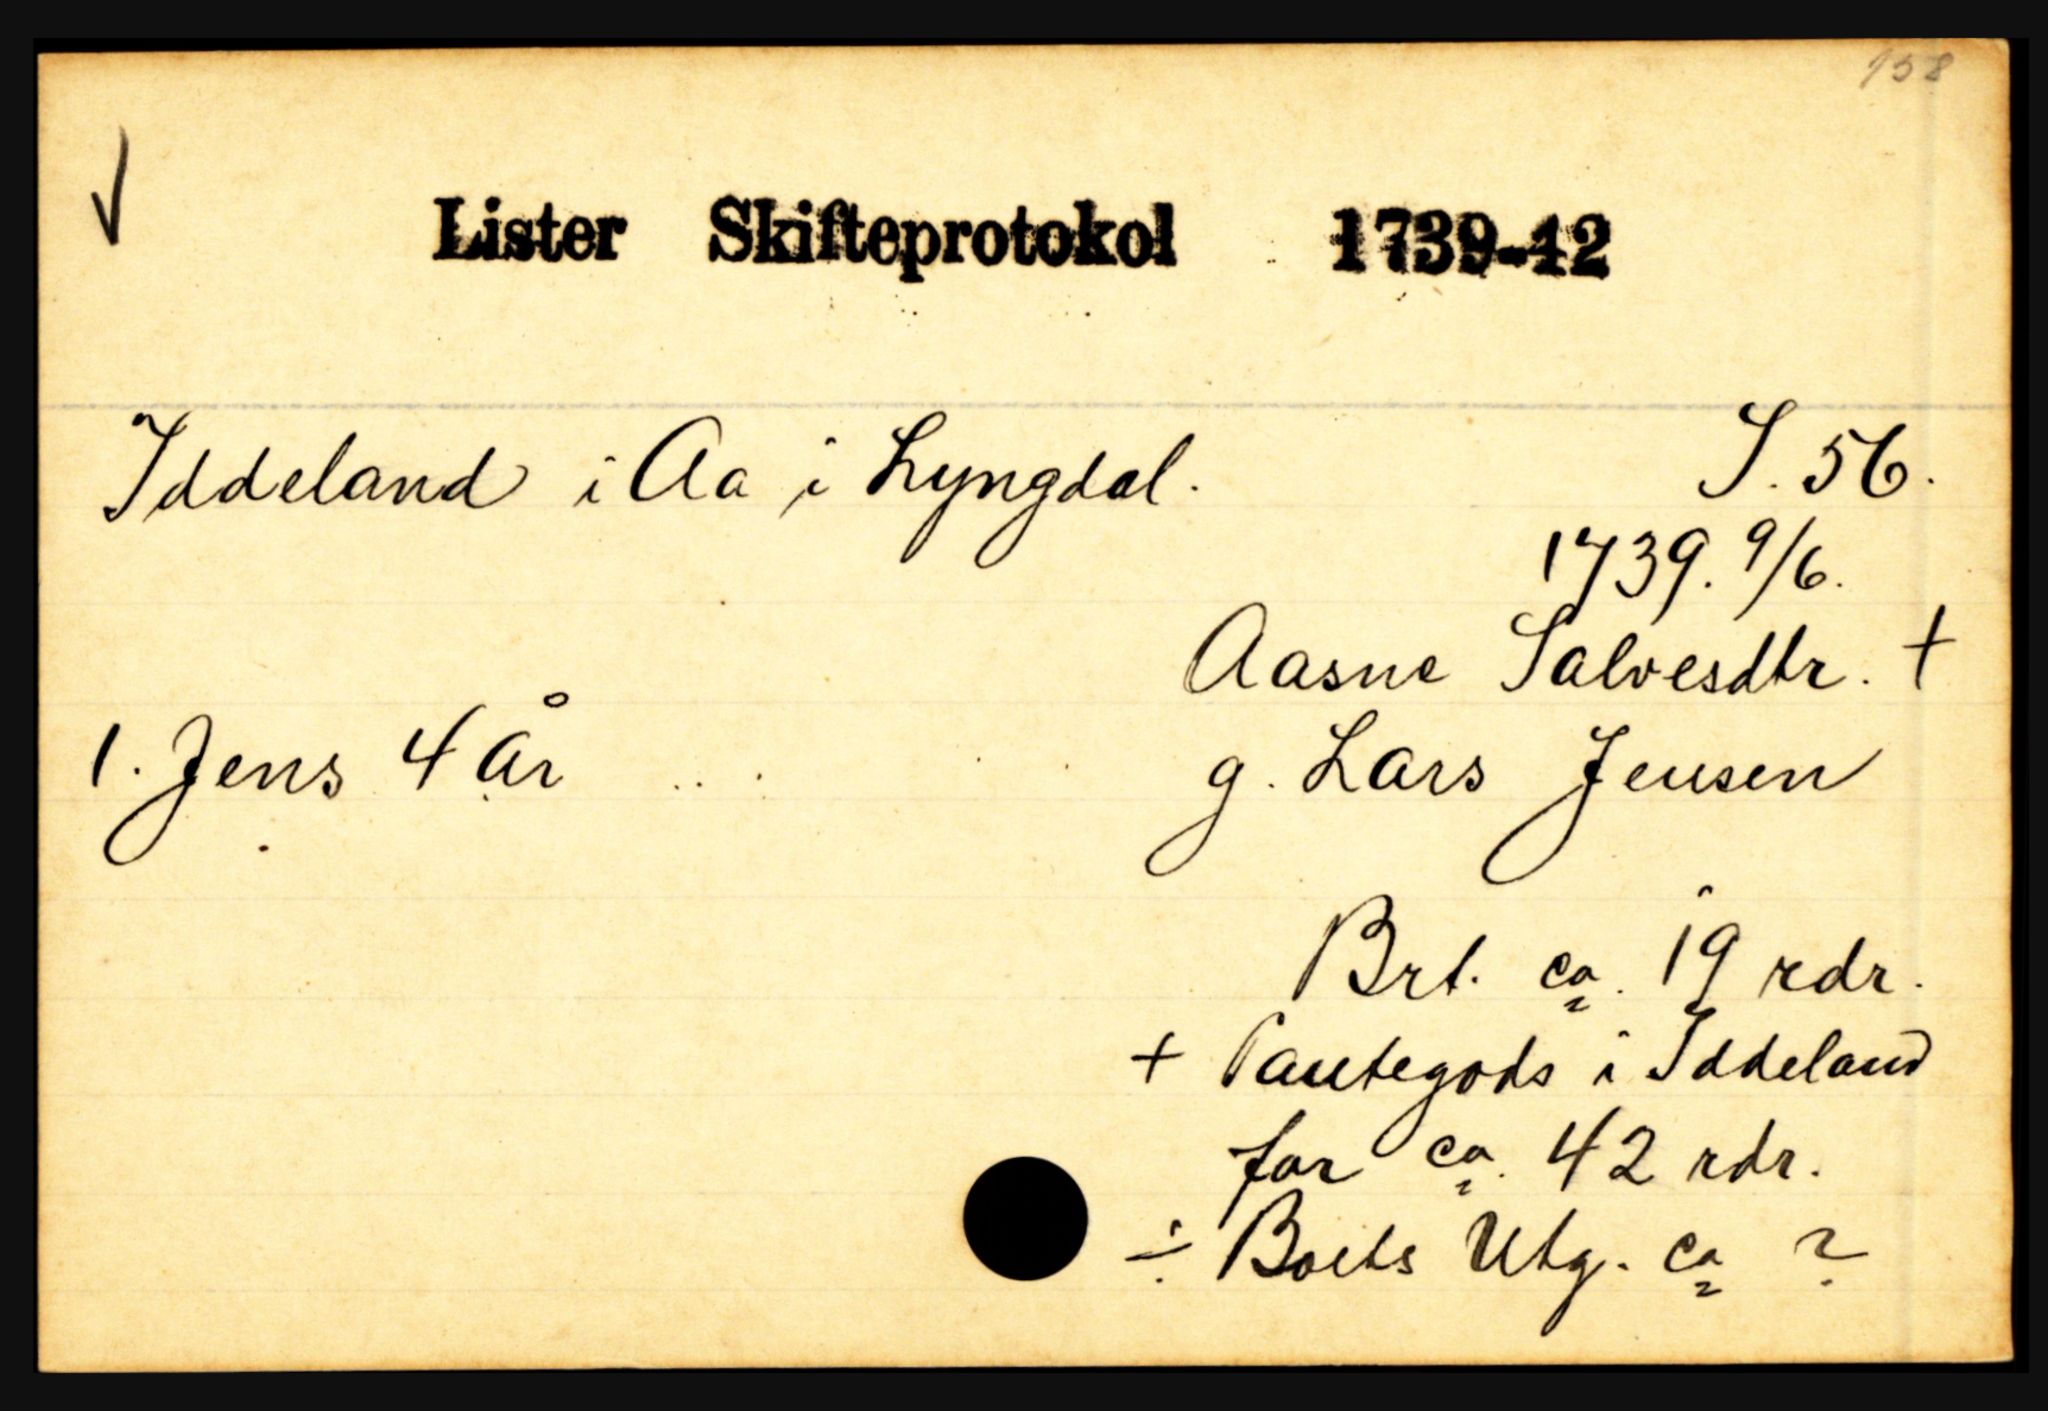 958
√
Lister Skifteprotokol 1739-42
Iddeland i Aa i Lyngdal. S. 56.
1739. 9/6.
Aasne Salvesdtr. +
1. Jens 4 år g. Lars Jensen
Brt. ca. 19 rdr.
+ Pantegods i Iddeland
for ca. 42 rdr.
÷ Boets Utg. ca ?